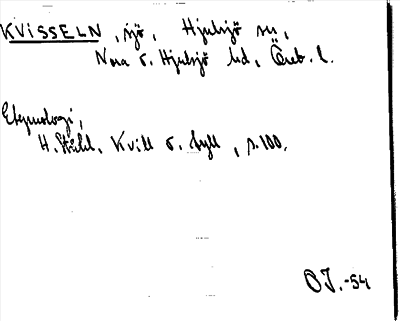 KVISSELN, sjö, Hjulsjö sn,
Nora o. Hjulsjö hd, Öreb. l.
Etymologi,
H. Ståhl, Kvill o. tyll, s. 100.
OJ.-54